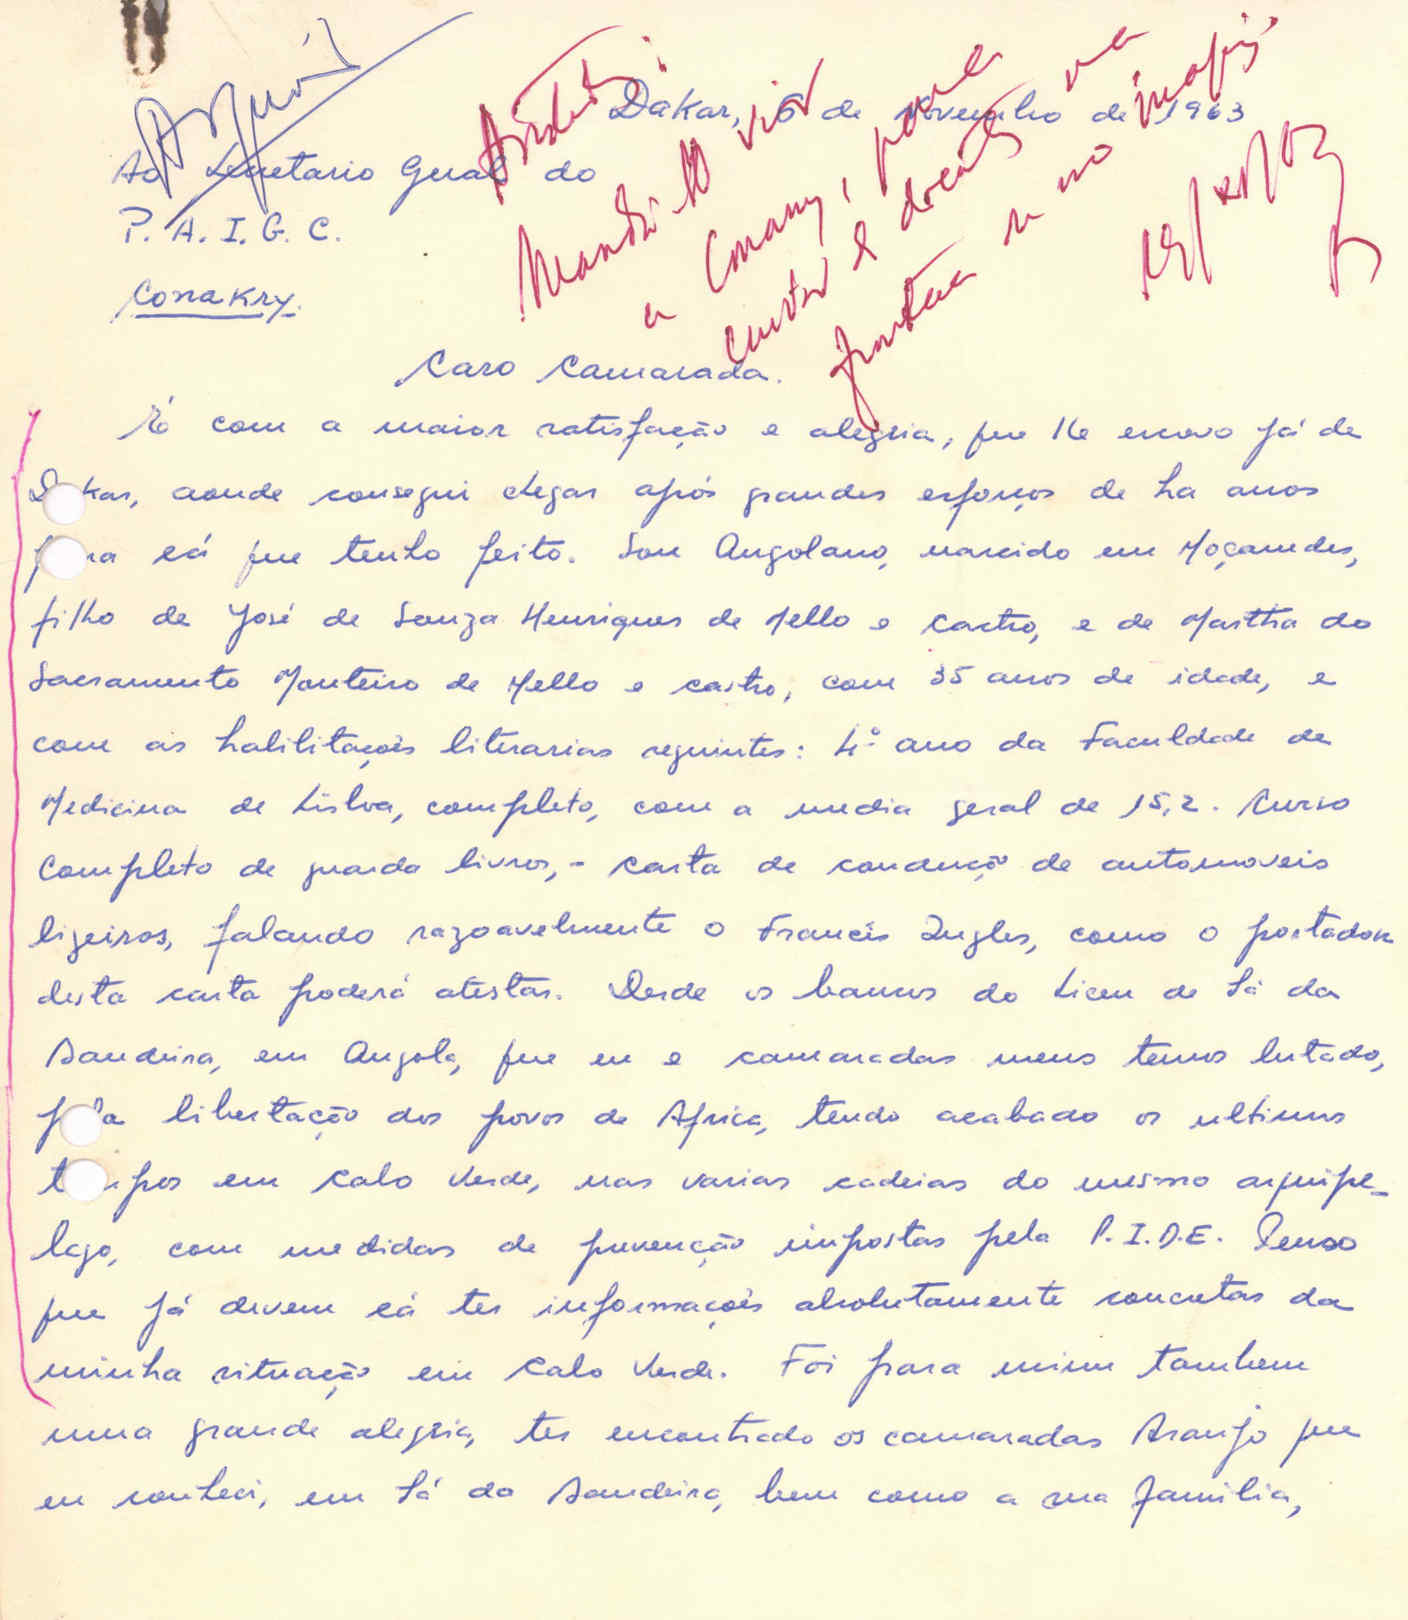 Arquivo
Aristides:
Mandá-lo vir
a Conakry, para
Dakar, 6 de Novembro de 1963
Ao Secretario Geral do
P. A. I. G. C.
Conakry.
Caro Camarada.
É com a maior satisfação e alegria, que lhe escrevo já de
Dakar, aonde consegui chegar após grandes esforços de ha anos
para cá que tenho feito. Sou Angolano, nascido em Moçamedes,
filho de José de Souza Henriques de Mello e Castro, e de Martha do
Sacramento Monteiro de Mello e castro, com 35 anos de idade, e
com as habilitações literarias seguintes: 4º ano da Faculdade de
Medicina de Lisboa, completo, com a media geral de 15,2. Curso
Completo de guarda livros, - carta de condução de automoveis
ligeiros, falando razoavelmente o Francês Ingles, como o portador
desta carta poderá atestar. Desde os bancos do Liceu de Sá da
Bandeira, em Angola, que eu e camaradas meus temos lutado,
pela libertação dos povos de Africa, tendo acabado os ultimos
tempos em Cabo Verde, nas varias cadeias do mesmo arquipe-
lago, com medidas de prevenção impostas pela P. I. D. E. Penso
que já devem cá ter informações absolutamente concretas da
minha situação em Cabo Verde. Foi para mim tambem
uma grande alegria, ter encontrado os camaradas Araujo que
eu conheci, em Sá da Bandeira, bem como a sua familia,